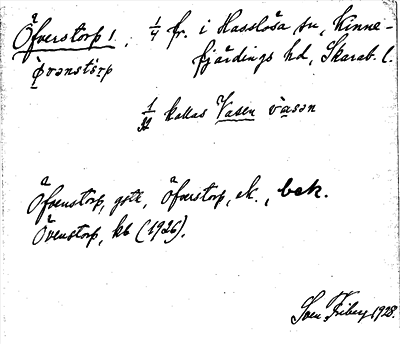 Öfverstorp 1. 1/4 fr. i Hasslösa sn, Kinne-
fjärdings hd, Skarab. l.
1/32 kallas Vasen vasən
Öfvenstorp, gstk, Öfverstorp, ek., bek.
Övenstorp, kb (1926).
Sven Friberg 1928.